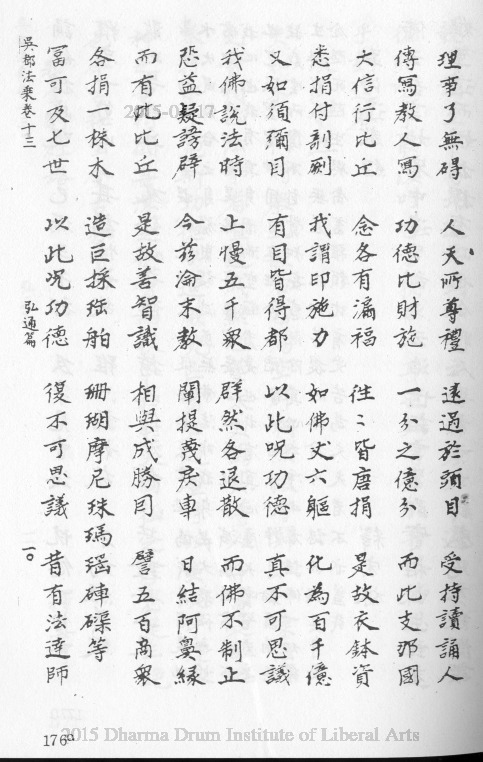 理事了無碍 人天所尊禮 遠過於頭目 受持讀誦人
傳寫教人寫 功德比財施 一分之億分 而此支那國
大信行比丘 金各有滿福 徃〻皆唐捐 是故衣鉢資
悉捐付剞劂 我謂印施力 如佛丈六軀 化為百千億
又如須彌目 有目皆得都 以此呪功德 真不可思議
我佛說法時 上慢五千衆 群然各退散 而佛不制止
恐益疑謗癖 今茲淪末教 闡提蔑戾車 日結阿鼻緣
而有此比丘 是故善智識 相與成勝因 譬五百商衆
各捐一株木 造巨採珠舶 珊瑚摩尼珠 瑪瑙硨磲等
富可及七世 以此呪功德 復不可思議 昔有法達師
吳都法乗卷十三 弘通篇 二〇
176
2015 Dharma Drum Institute of Liberal Arts